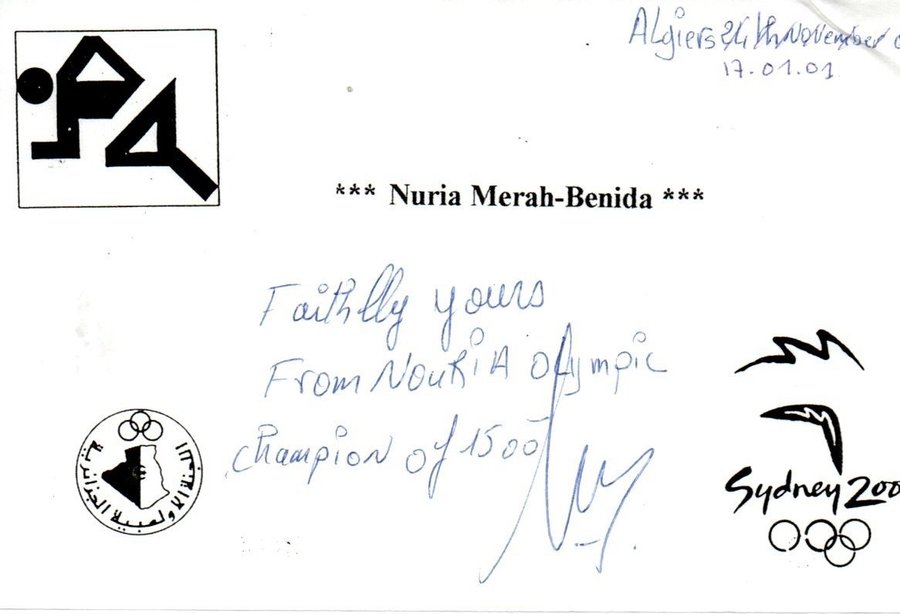 Algiers 24th November
17.01.01
*** Nuria Merah-Benida ***
Faithlly yours
From NOURIA Olympic
champion of 1500
اللجنة الاولمبية الجزائرية
Sydney 200